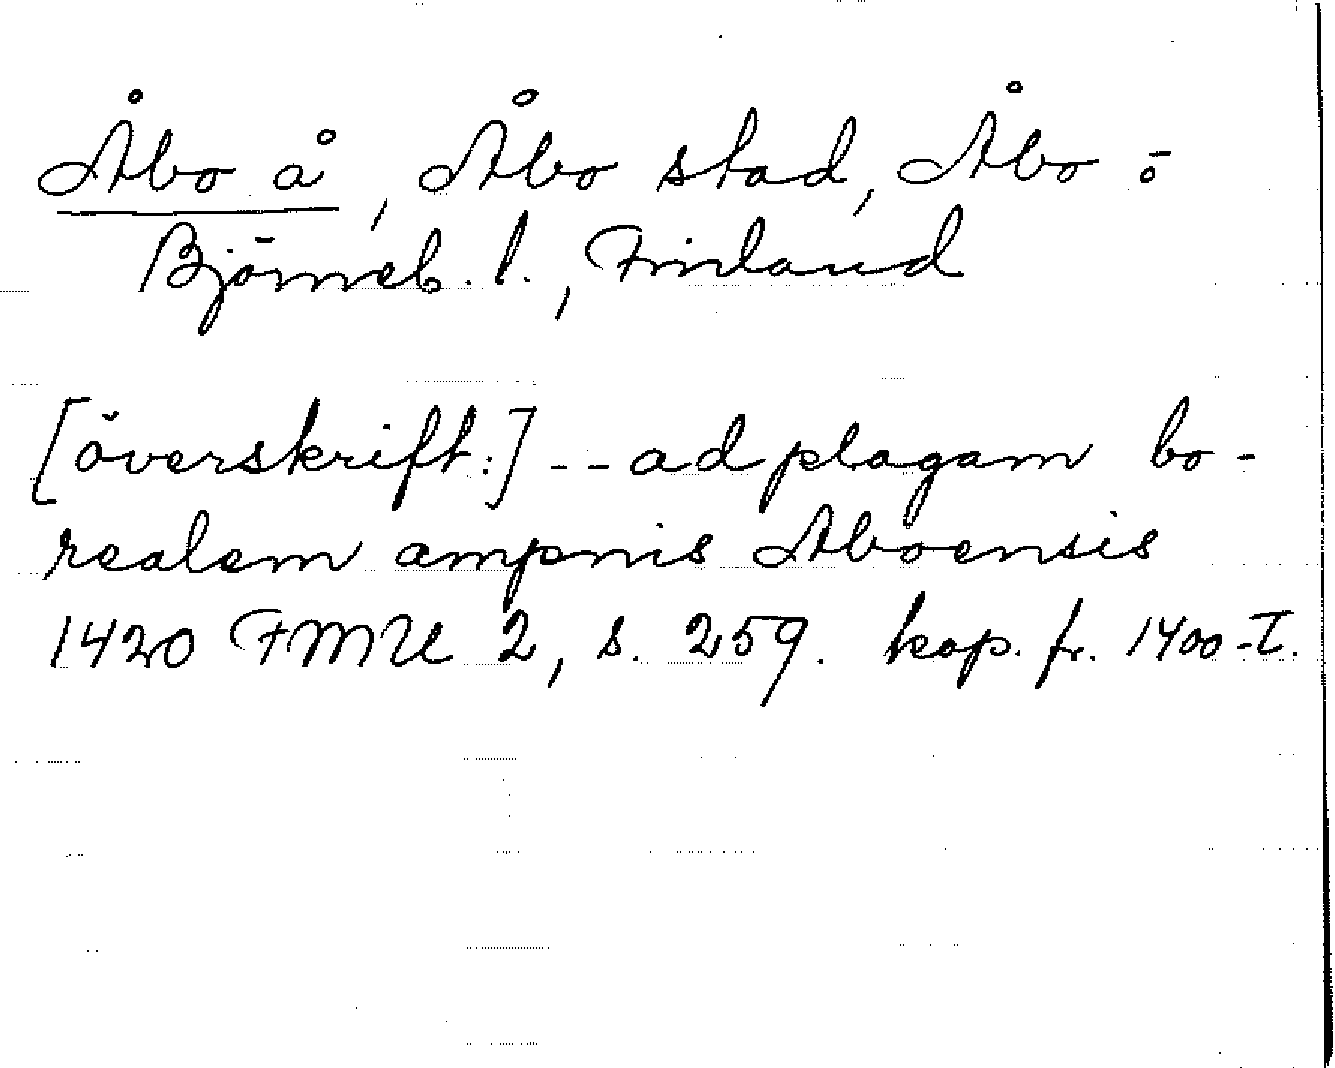 Åbo å, Åbo stad, Åbo o
Björneb. l., Finland
[överskrift:] -- ad plagam bo-
realem ampnis Aboensis
1420 FMU 2, s. 259. kop. fr. 1400-T.